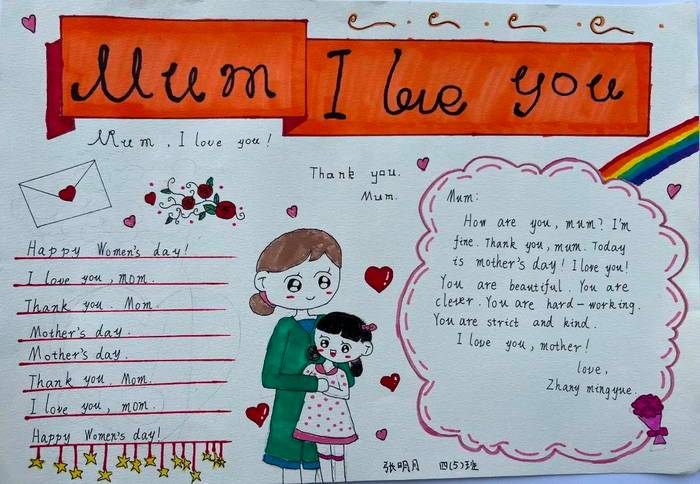 Mum I love you
Mum, I love you!
Thank you.
Mum.
Happy Women's day!
I love you, mom.
Thank you. Mom.
Mother's day.
Mother's day.
Thank you. Mom.
I love you, mom.
Happy Women's day!
Mum:
How are you, mum? I'm
fine. Thank you, mum. Today
is mother's day! I love you!
You are beautiful. You are
clever. You are hard-working.
You are strict and kind.
I love you, mother!
love,
Zhang mingyue.
张明月 四(5)班